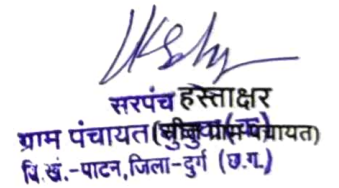 सरपंच हस्ताक्षर
ग्राम पंचायत
वि.खं.-पाटन,जिला-दुर्ग (छ.ग.)